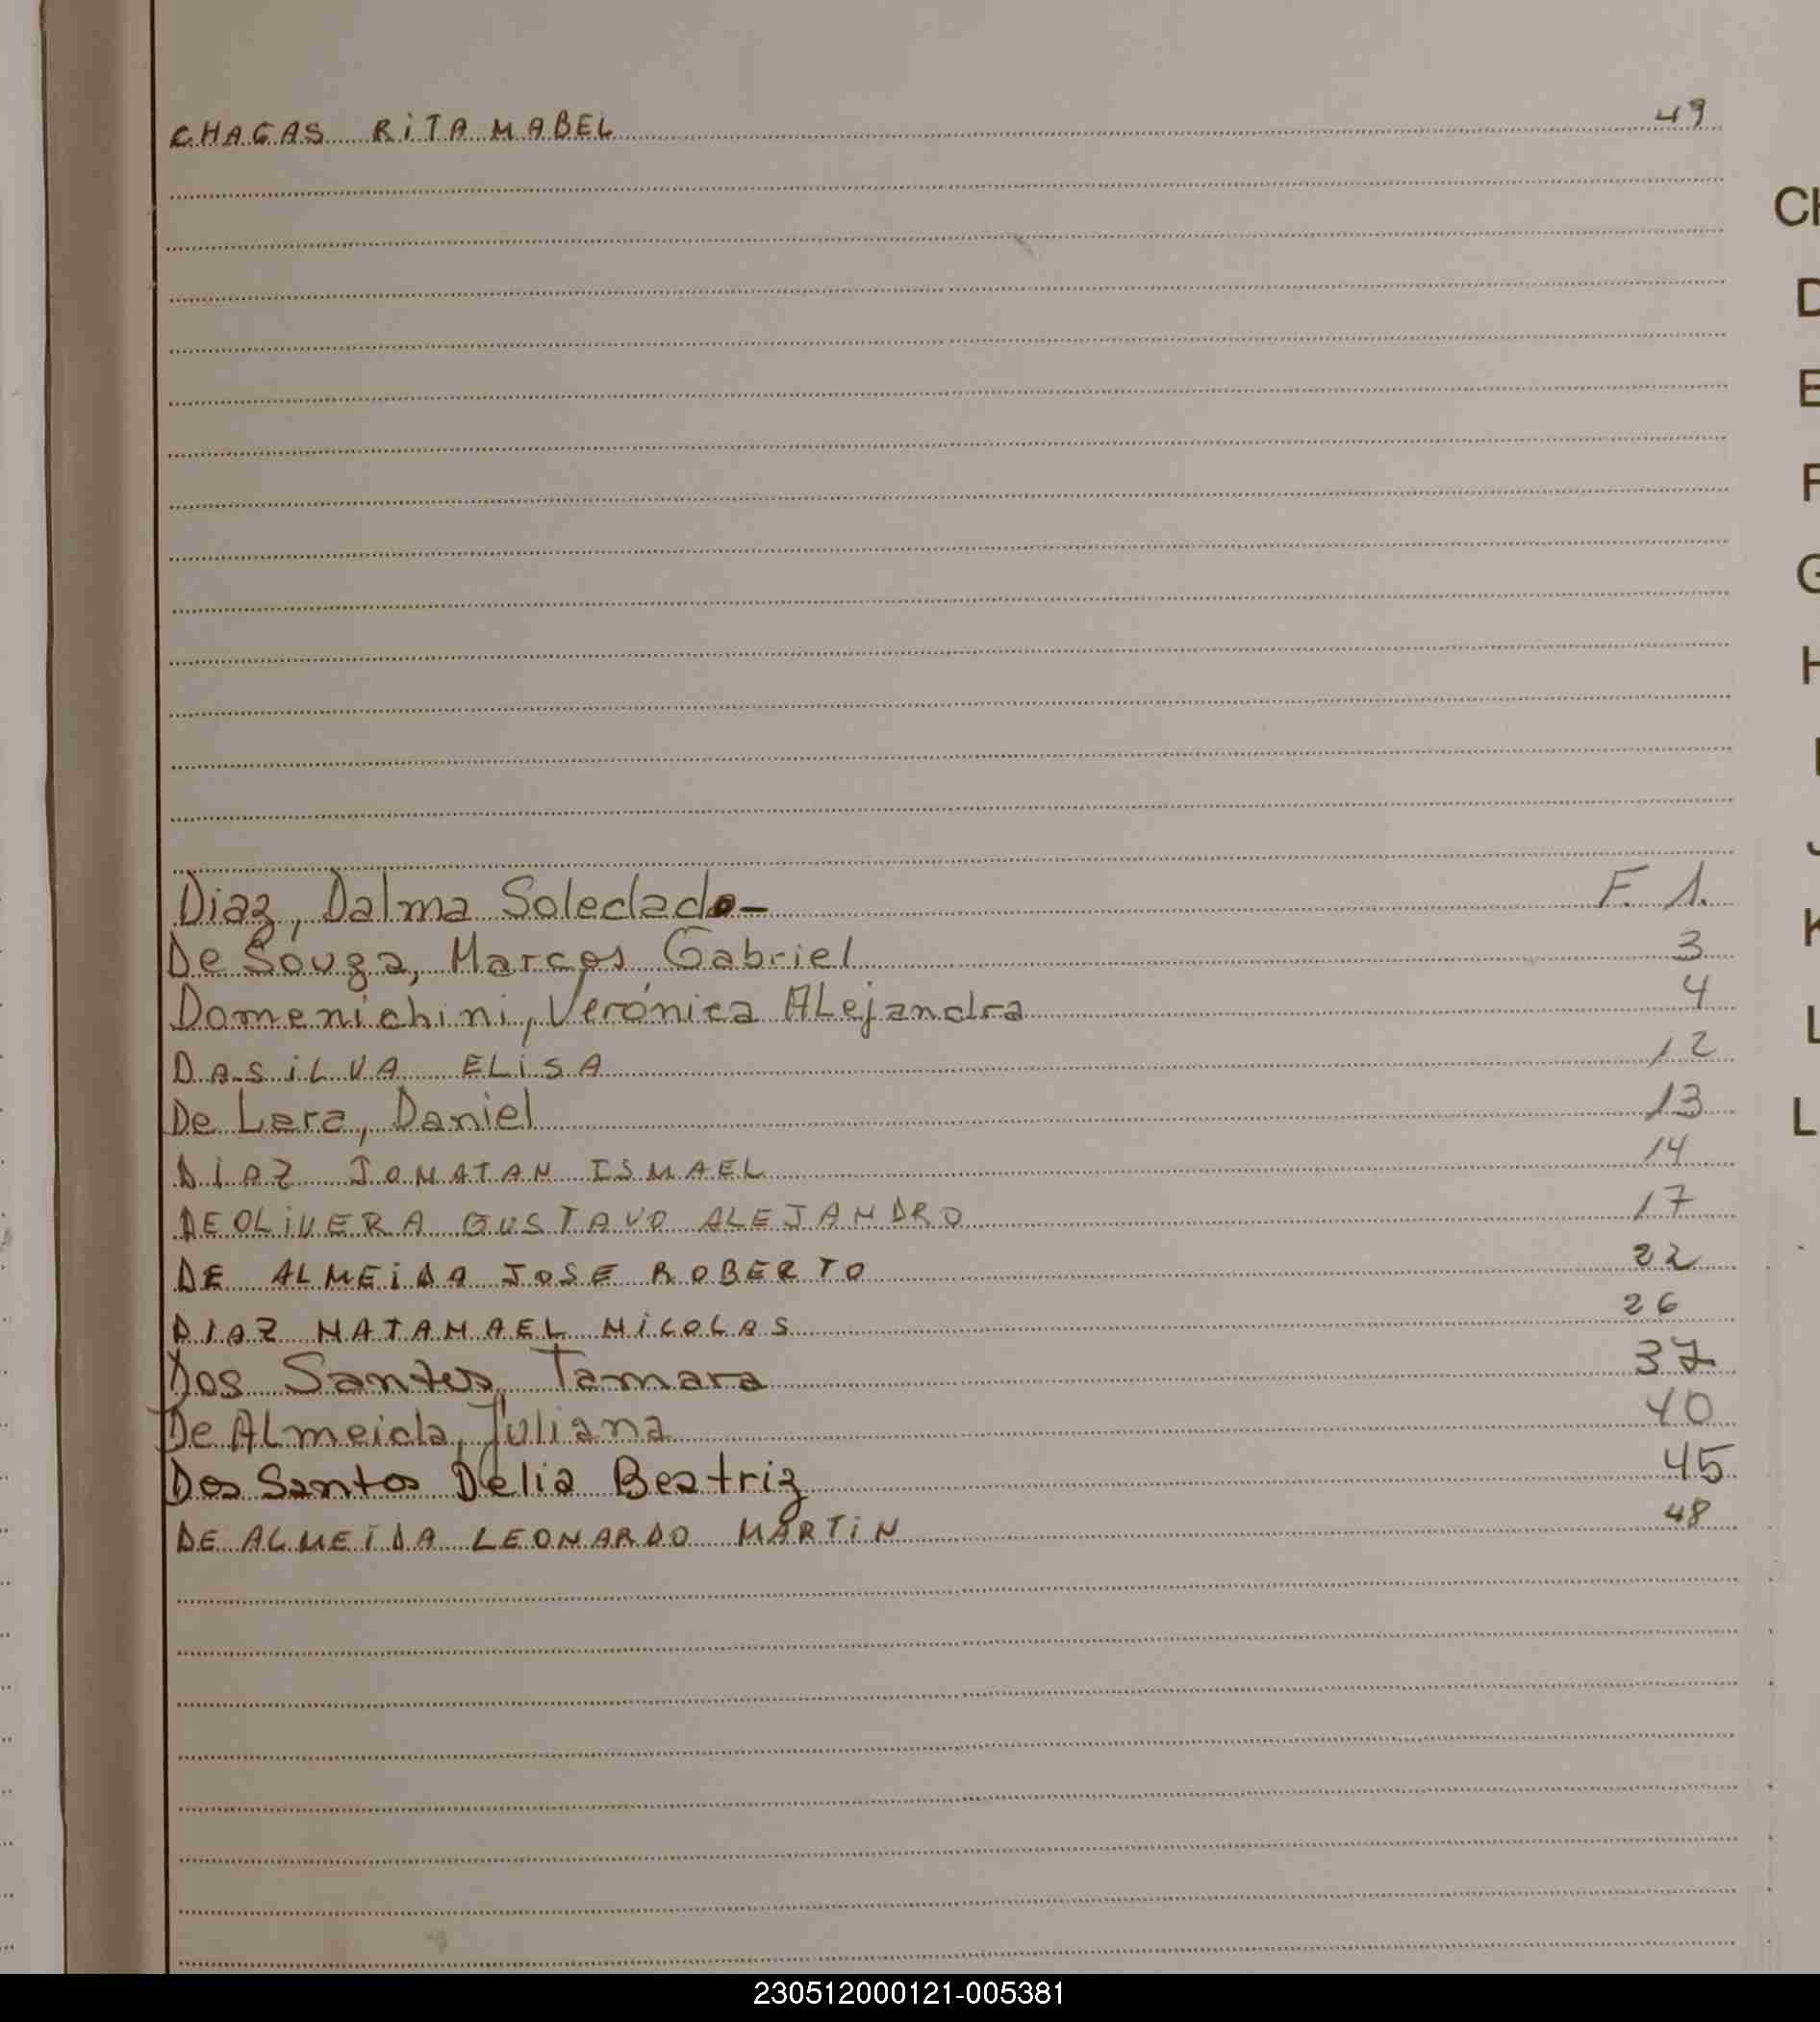 CHAGAS RITA MABEL 49
CH
D
E
F
G
H
I
J
Diaz, Dalma Soledad.- F. 1.
De Souza, Marcos Gabriel 3
K
Domenichini, Verónica ALejandra 4
L
DASILVA ELISA 12
De Lara, Daniel 13
L
DIAZ JONATAN ISMAEL 14
DEOLIVERA GUSTAVO ALEJANDRO 17
DE ALMEIDA JOSE ROBERTO 22
DIAZ NATANAEL NICOLAS 26
Dos Santos, Tamara 37
De ALmeida, Juliana 40
Dos Santos Delia Beatriz 45
DE ALMEIDA LEONARDO MARTIN 48
230512000121-005381